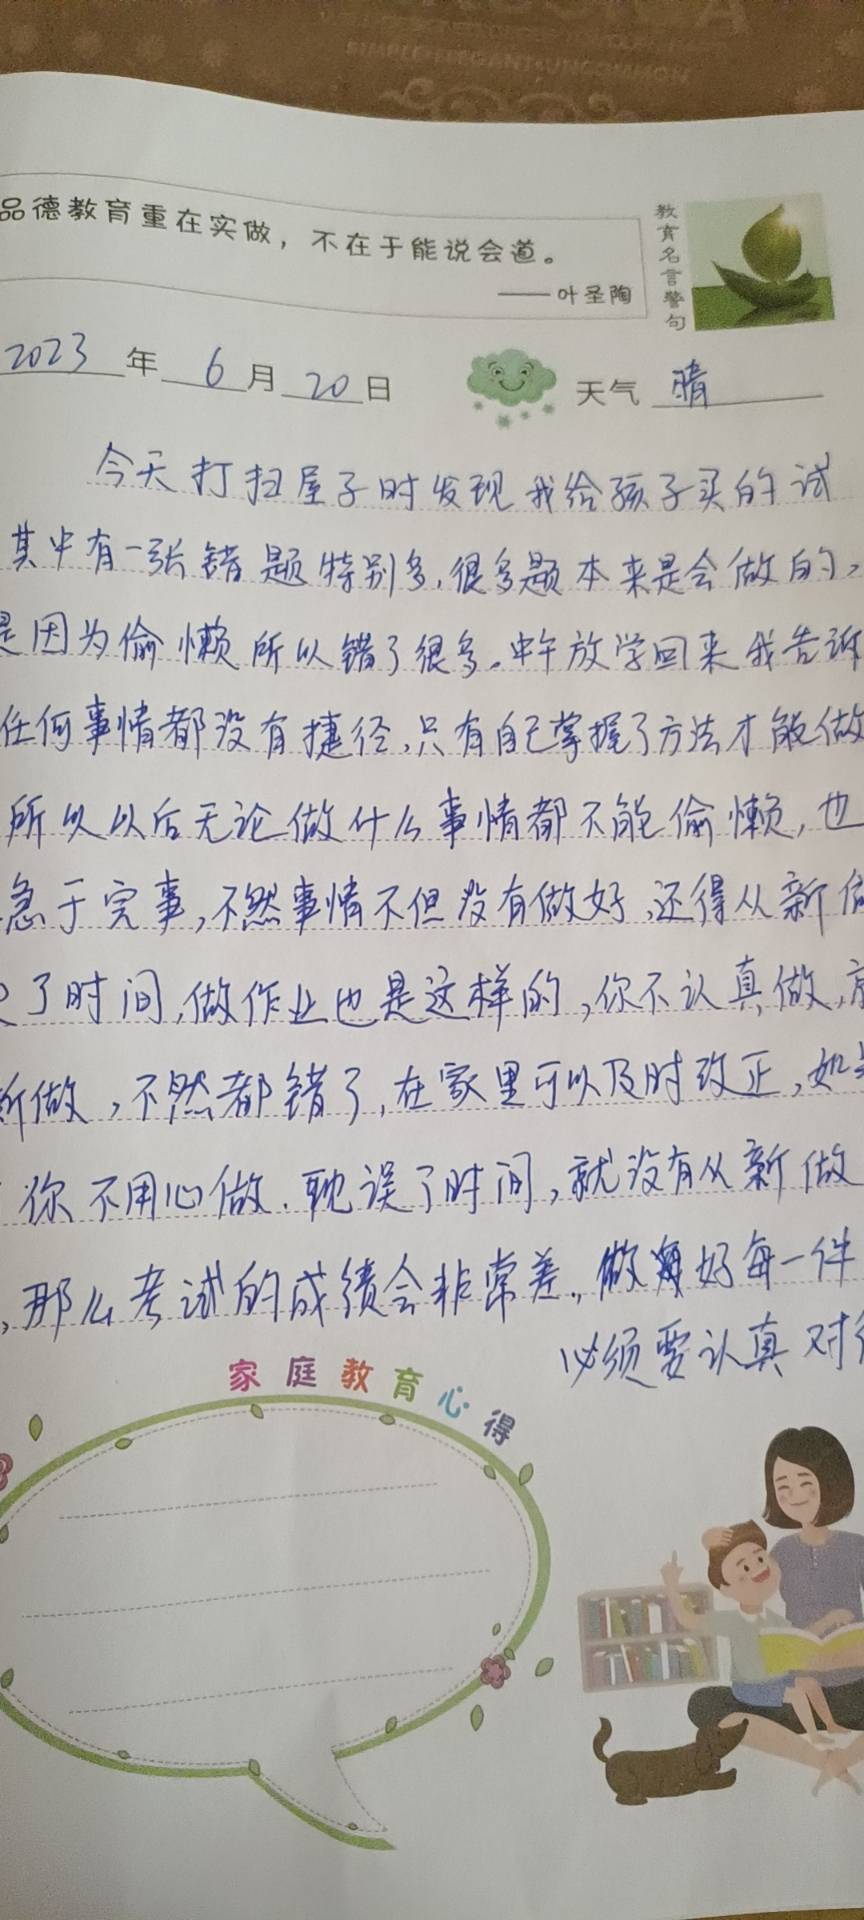 SIMPLE·ELEGANT·UNCOMMON
品德教育重在实做，不在于能说会道。
——叶圣陶
教育名言警句
2023年6月20日 天气 晴
今天打扫屋子时发现我给孩子买的试
其中有一张错题特别多，很多题本来是会做的，
是因为偷懒所以错了很多。中午放学回来我告诉
任何事情都没有捷径，只有自己掌握了方法才能做
所以以后无论做什么事情都不能偷懒，也
急于完事，不然事情不但没有做好，还得从新做
了时间，做作业也是这样的，你不认真做，
新做，不然都错了，在家里可以及时改正，如
你不用心做.耽误了时间，就没有从新做
，那么考试的成绩会非常差。做好每一件
必须要认真对待
家庭教育心得